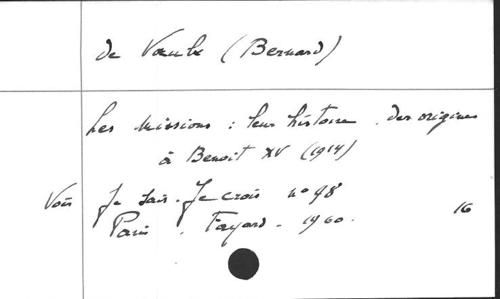 de Vaulx (Bernard)
Les Missions : leur histoire . des origines
à Benoit XV (1914)
Voir Je sais - Je crois n° 98
Paris . Fayard - 1960. 16